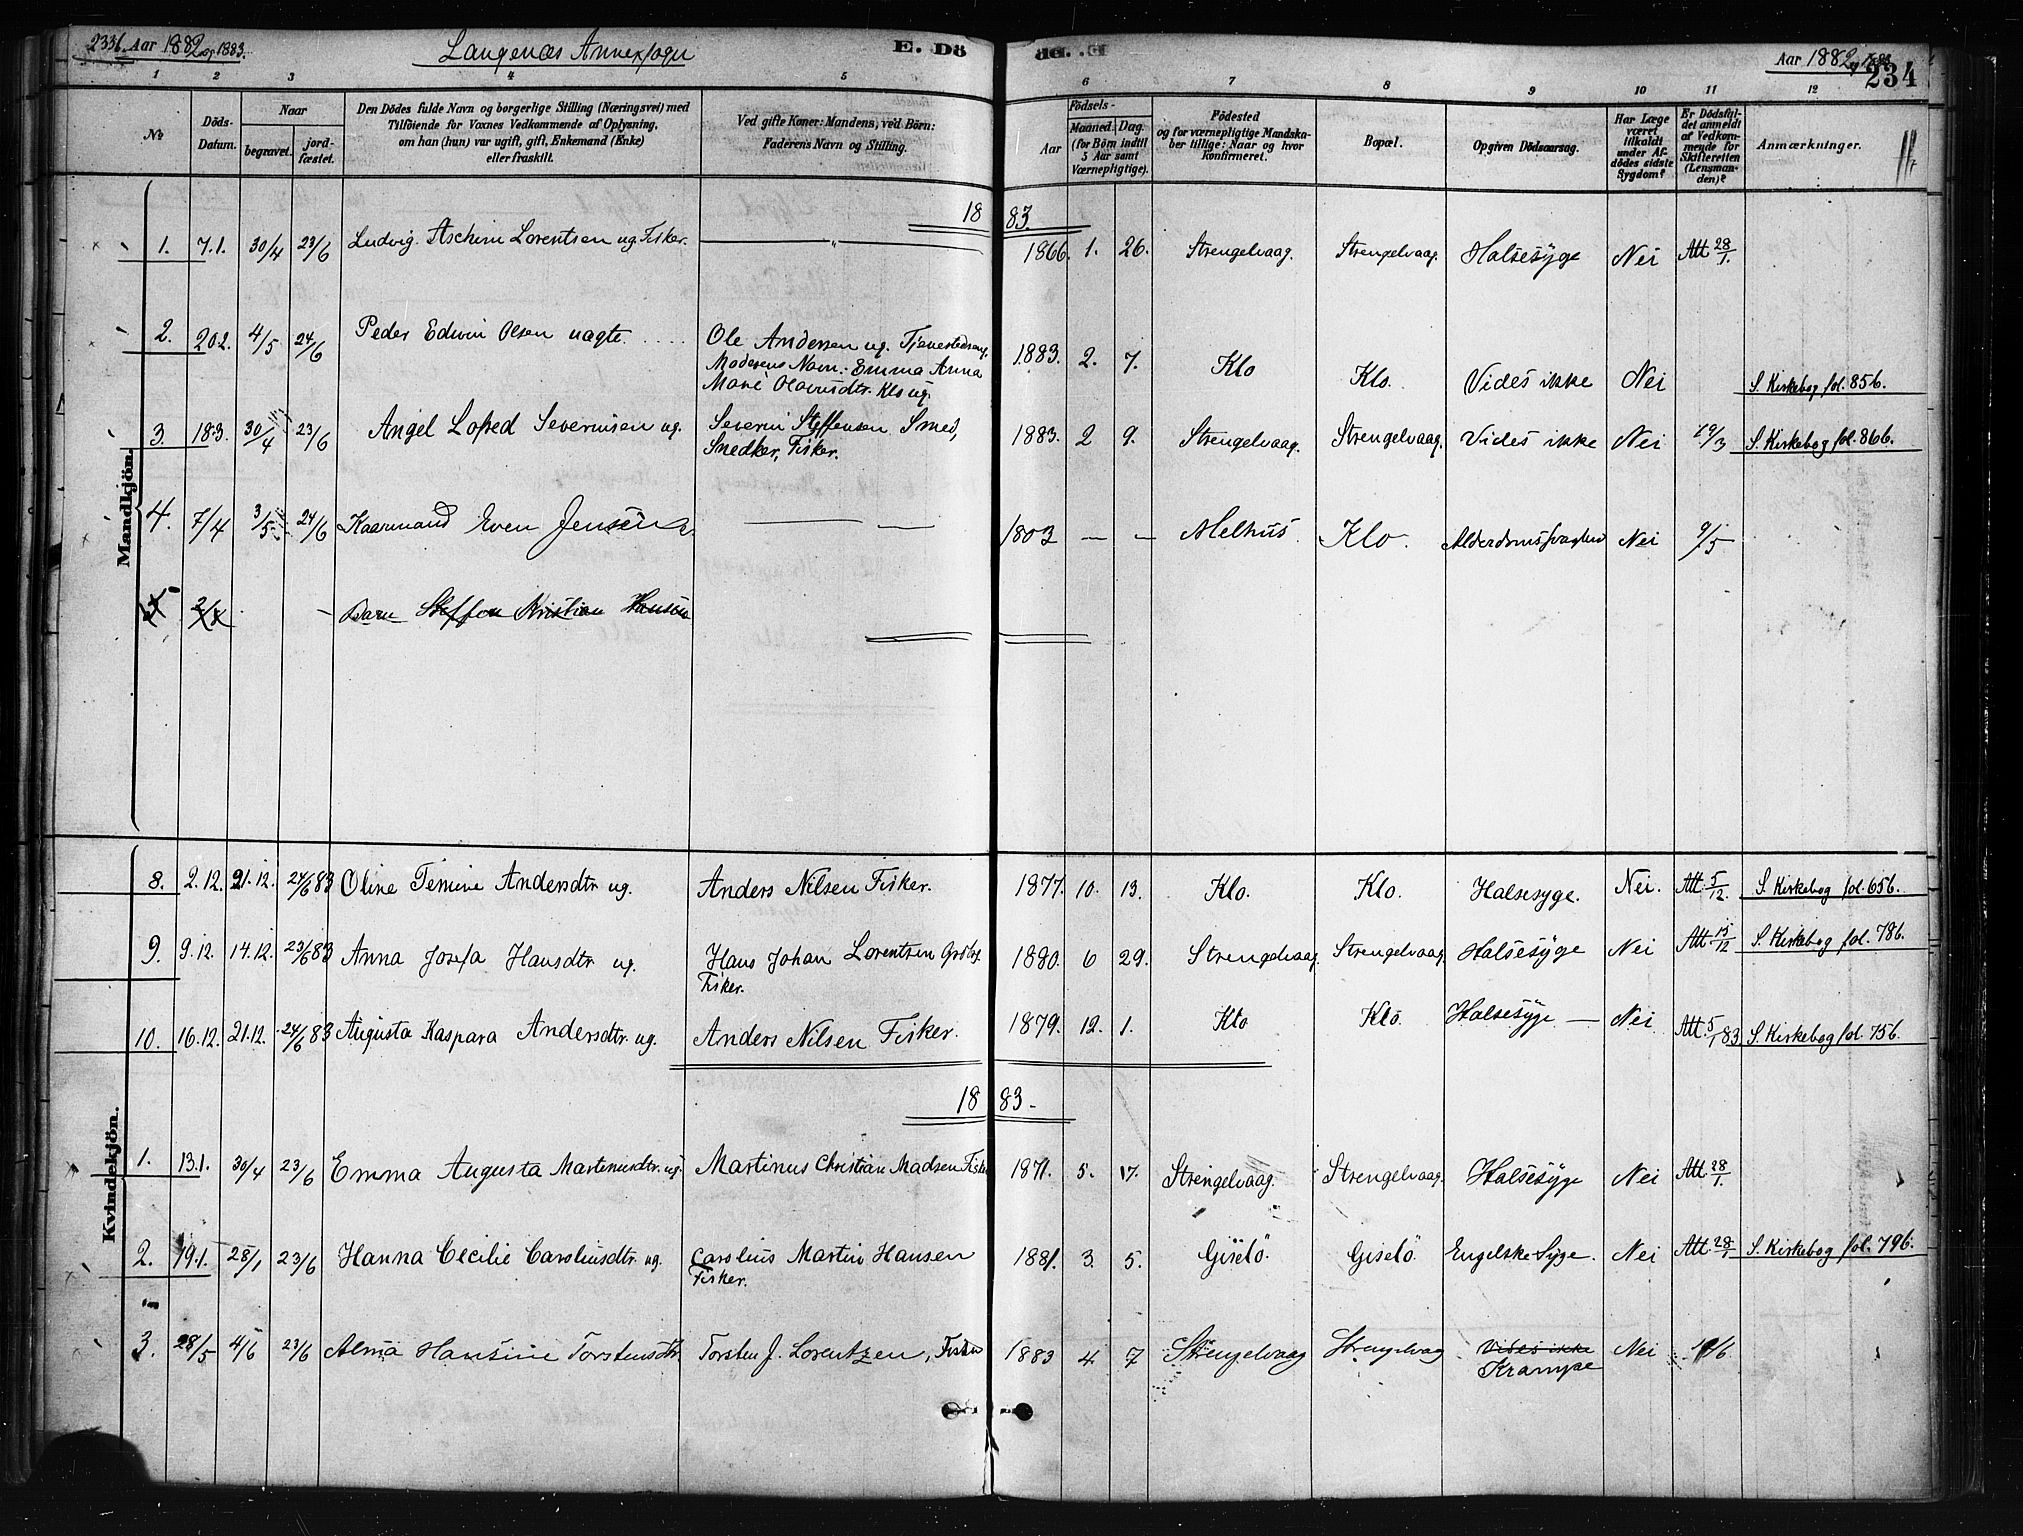 233b. Aar 1882 og 1883.
Langenæs Annexsogn
E. Dö
Aar 1882 og 1883
234
1 2 3 4 5 6 7 8 9 10 11 12
No
Döds-Datum.
Naar
begravet.
jord-fæstet.
Den Dödes fulde Navn og borgerlige Stilling (Næringsvei) med
Tilföiende for Voxnes Vedkommende af Oplysning,
om han (hun) var ugift, gift, Enkemand (Enke)
eller fraskilt.
Ved gifte Koner: Mandens, ved Börn:
Faderens Navn og Stilling.
Födsels-
Aar
Maaned. Dag.
(for Börn indtil
5 Aar samt
Værnepligtige).
Födested
og for værnepligtige Mandska-
ber tillige: Naar og hvor
konfirmeret.
Bopæl.
Opgiven Dödsaarsag.
Har Læge
været
tilkaldt
under Af-
dödes sidste
Sygdom?
Er Dödsfal-
det anmeldt
af Vedkom-
mende for
Skifteretten
(Lensman-
den)?
Anmærkninger.
Mandkjön.
1883.
1. 7.1. 30/4 23/6 Ludvig Aschim Lorentsen ug. Fisker. — " — 1866. 1. 26. Strengelvaag. Strengelvaag. Halsesyge Nei Att 28/1.
2. 20.2. 4/5 24/6 Peder Edwin Olsen uægte. Ole Andersen ug. 1883. 2. 7. Klo Klo. Vides ikke Nei S. Kirkebog fol. 85b.
Moderens Navn: Emma Anna
Marie Olavusdtr. Klo ug.
3. 18.3. 30/4 23/6 Angel Lofred Severinsen ug. Severin Steffensen Smed, 1883. 2 9. Strengelvaag. Strengelvaag. Vides ikke Nei 19/3 S. Kirkebog fol. 86b.
Snedker, Fisker.
4. 7/4 3/5 24/6 Kaarmand Even Jensen — — 1803 — — Melhus. Klo. Alderdomssvaghed Nei 9/5
5 — Barn Steffen Kristian Hansen
Kvindekjön.
8. 2.12. 21.12. 24/6 83 Oline Temine Andersdtr ug. Anders Nilsen Fisker. 1877. 10. 13. Klo. Klo. Halsesyge. Nei. Att. 5/12. S. Kirkebog fol. 65b.
9. 9.12. 14.12. 23/6 83 Anna Josefa Hansdtr ug. Hans Johan Lorentsen 1880. 6 29. Strengelvaag. Strengelvaag. Halsesyge Nei Att 15/12 S. Kirkebog fol. 78b.
Fisker.
10. 16.12. 21.12. 24/6 83 Augusta Kaspara Andersdtr. ug. Anders Nilsen Fisker. 1879. 12. 1. Klo Klo. Halsesyge — Nei Att. 5/1 83. S. Kirkebog fol. 75b.
1883.
1. 13.1. 30/4 23/6 Emma Augusta Martinusdtr. ug. Martinus Christian Madsen Fisker 1871. 5. 17. Strengelvaag. Strengelvaag. Halsesyge Nei Att 28/1.
2. 19.1. 28/1 23/6 Hanna Cecilie Caroliusdtr. ug. Carolius Martin Hansen 1881. 3. 5. Giselö. Giselö Engelske Syge. Nei Att 28/1 S. Kirkebog fol. 79b.
Fisker.
3. 28/5 4/6 23/6 Alma Hansine Torstensdtr. Torsten J. Lorentzen, Fisker 1883 4 7 Strengelvaag Strengelvaag Vides ikke Nei
Krampe